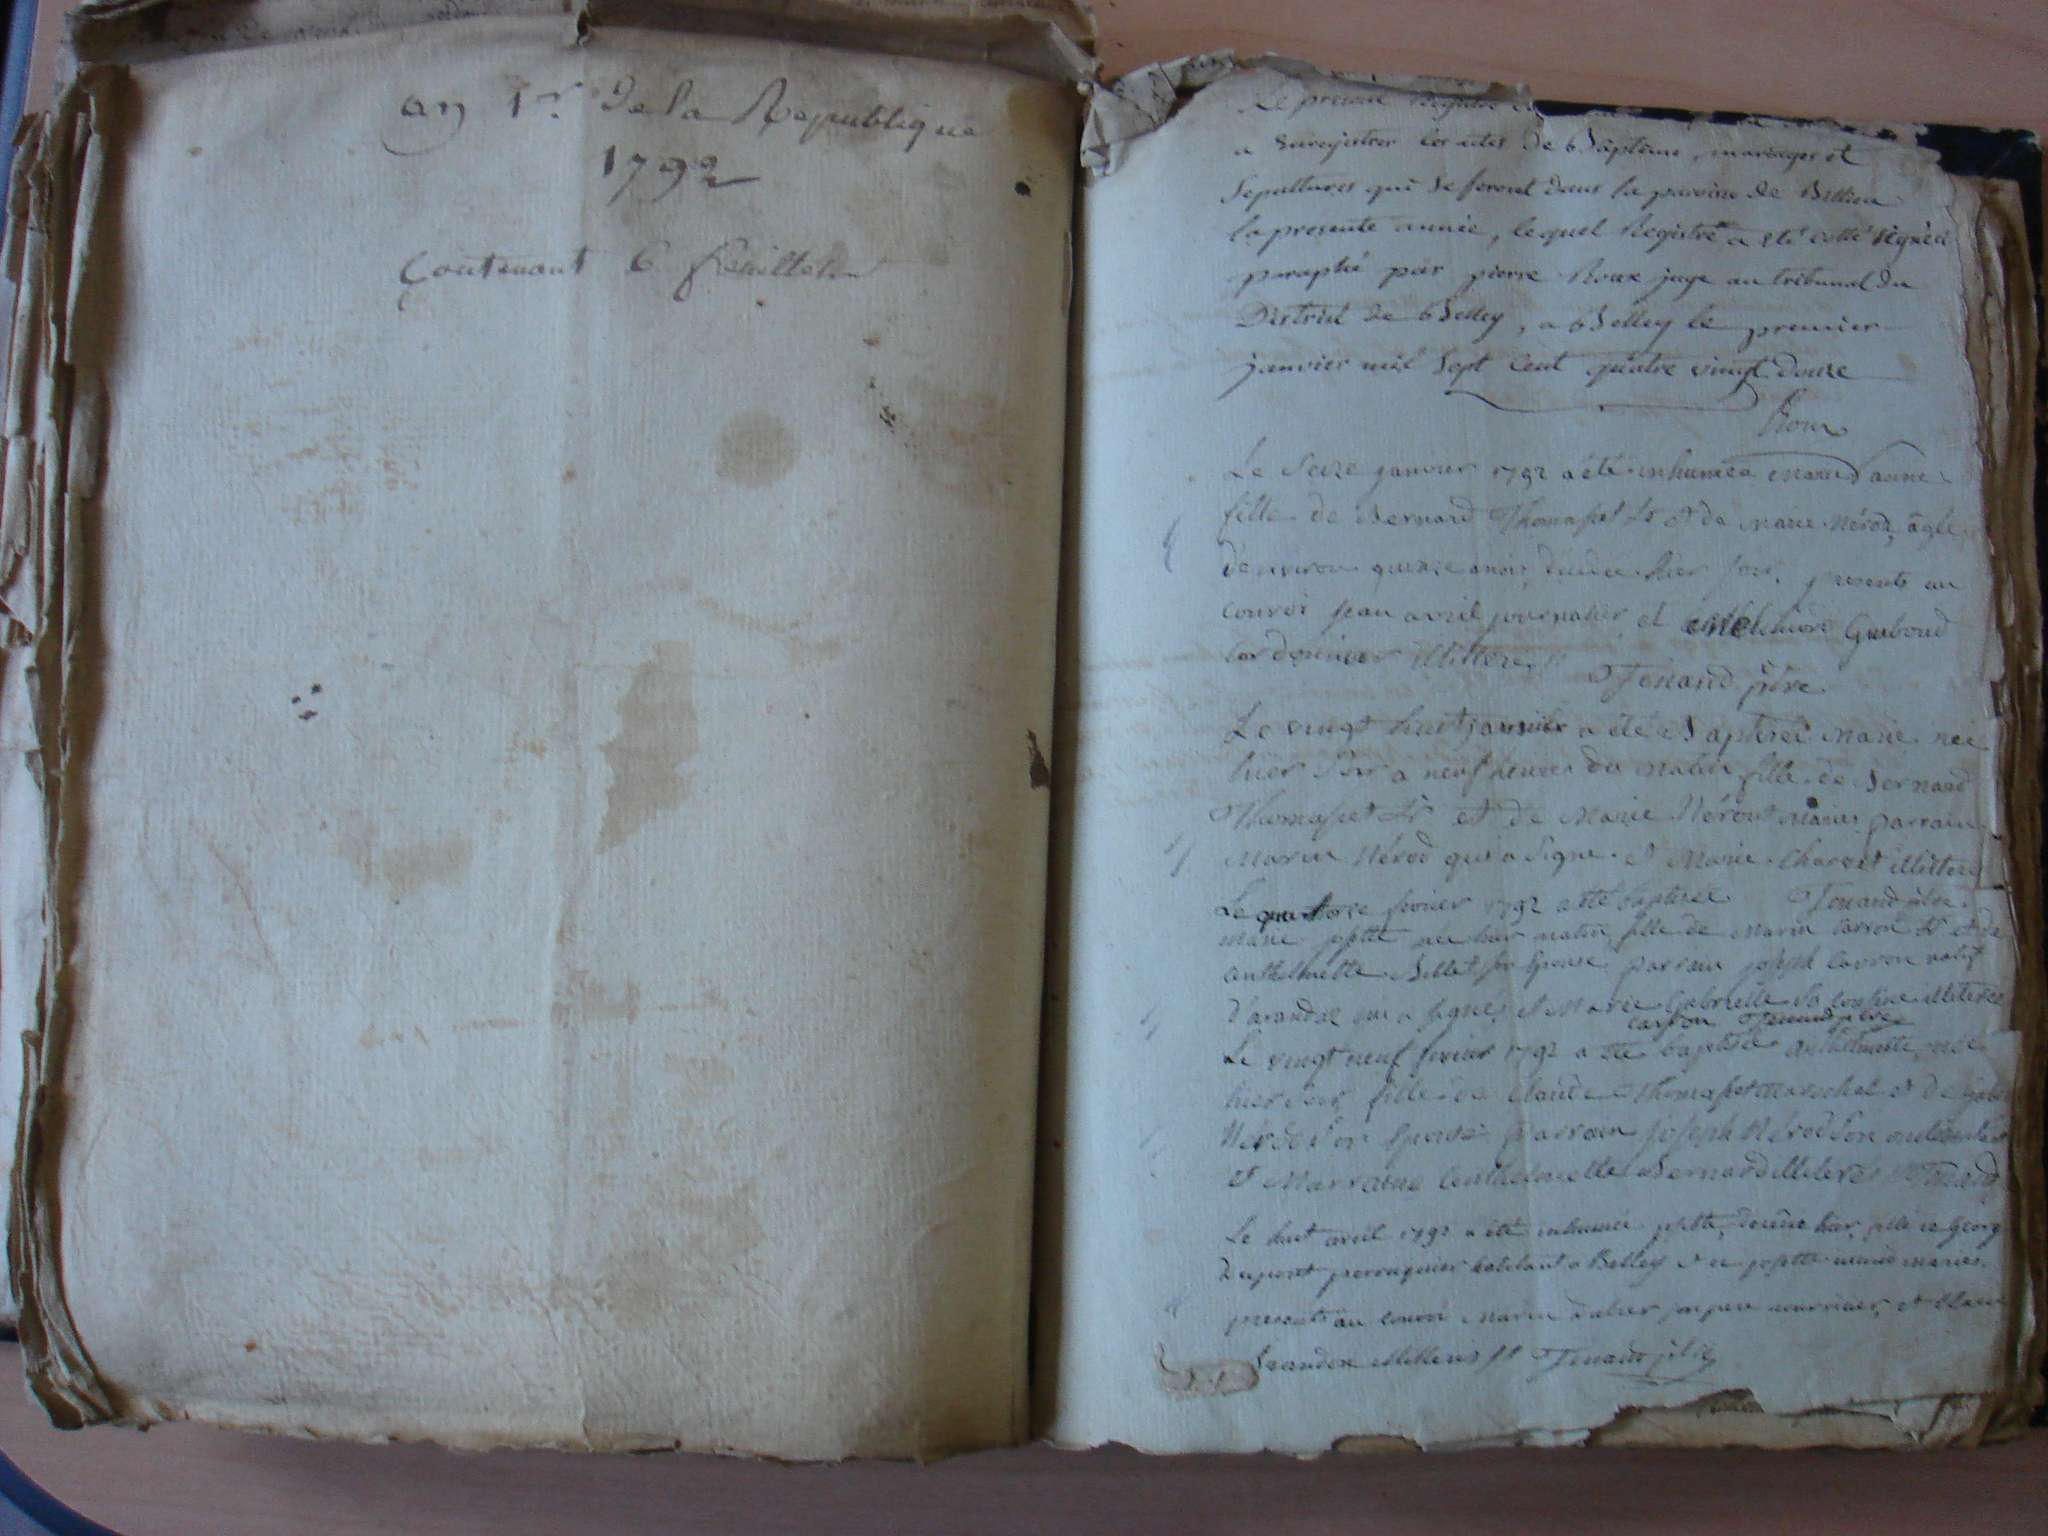 an 1.r de la Republique
1792
Contenant 6 feuillets
Le présent Registre
a Enregistrer les actes de Baptême, mariages et
Sepultures qui se feront dans la paroisse de
la presente année, lequel Registre a eté cotté signé et
paraphé par pierre Roux juge au tribunal du
District de Belley, a Belley le premier
janvier mil Sept Cent quatre vingt douze
Roux
Le Seize janvier 1792 a été inhumée Marie anne
fille de Bernard Thomasset et de Marie Nérod, âgée
d'environ quinze mois, décédée hier soir, presents au
convoi jean avril journalier et Guiboud
cordonnier illitere.
Tenand ptre
Le vingt huit janvier a été Baptisée Marie née
hier a neuf heures du matin fille de Bernard
Thomasset et de Marie Nérod mariés parrain
Marin Nérod qui a signé et Marie Charvet illitere
Tenand ptre
Le quatorze fevrier 1792 a été baptisée
marie josette née hier matin fille de Marin Carron et de
anthelmette Billet son Epouse parrain joseph Carron natif
d'arandaz qui a signé, et Marie Gabrielle sa cousine illiteree
Carron Tenand ptre
Le vingt neuf fevrier 1792 a été baptisée anthelmette née
hier soir fille de Claude Thomasset marechal et de
Nérod son Epouse parrain joseph Nérod son oncle
et Marraine anthelmette Bernard illiteres Tenand
Le huit avril 1792 a été inhumée josette, décédée hier, fille de George
Dupont perruquier habitant a Belley et de josette mariés.
presents au convoi Marin son pere nourricier, et Claude
illiteres Tenand ptre